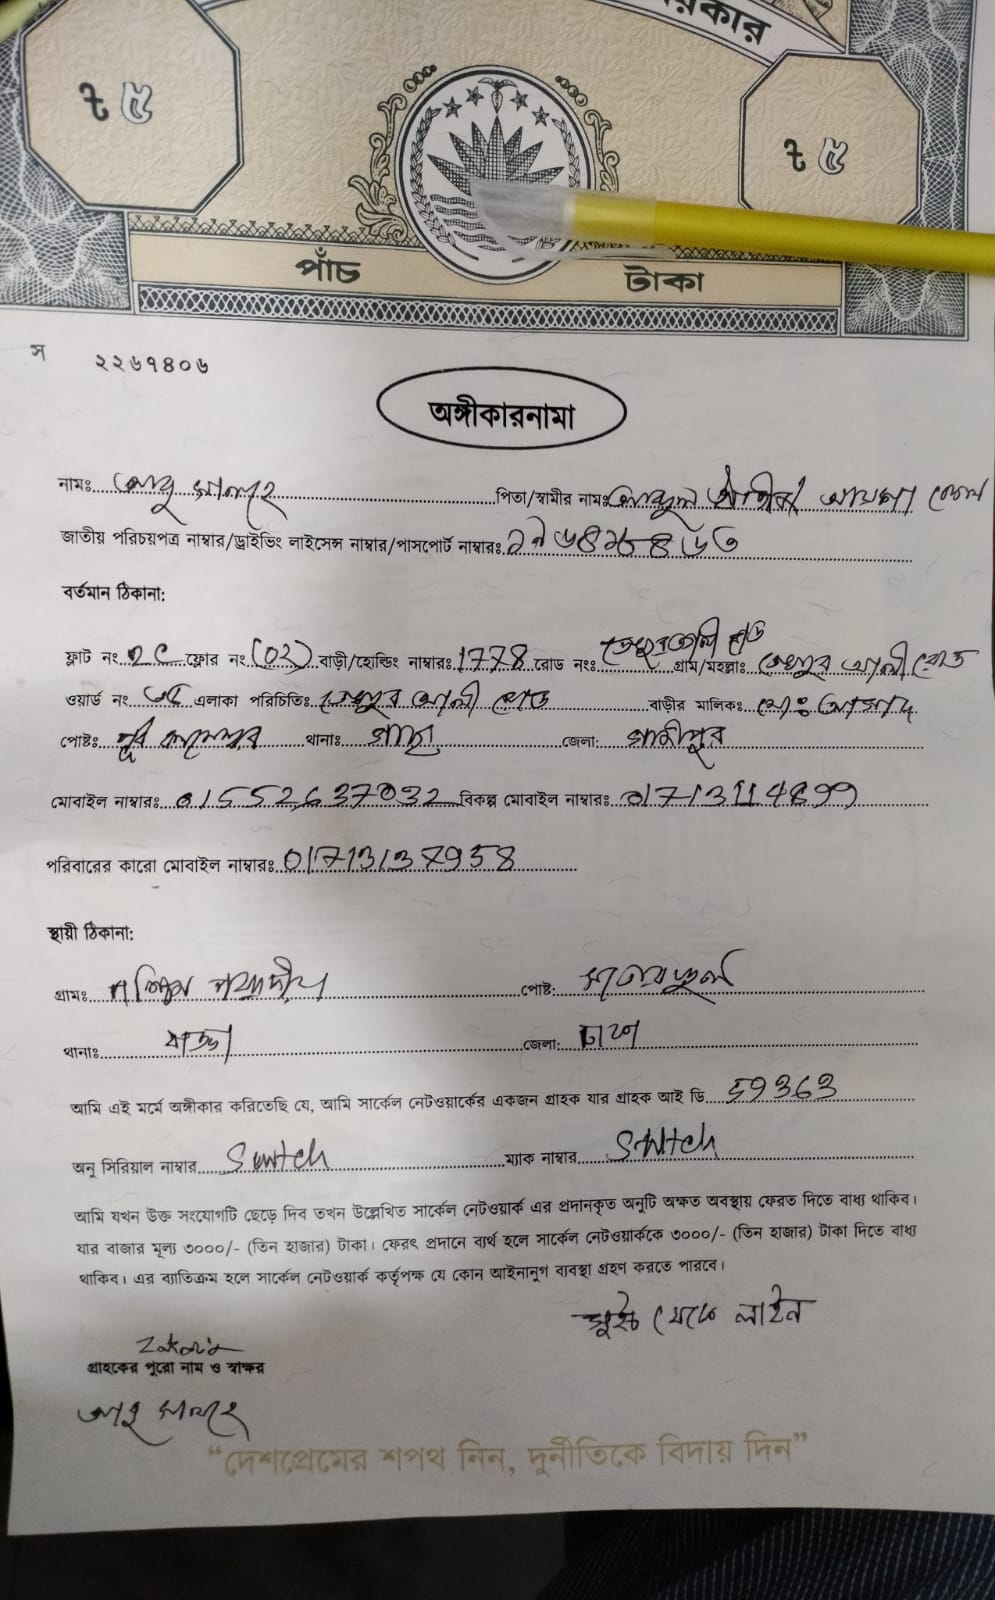 রকার
৳ ৫
৳ ৫
পাঁচ টাকা
স ২২৬৭৪০৬
অঙ্গীকারনামা
নামঃ আবু সালেহ পিতা/স্বামীর নামঃ
জাতীয় পরিচয়পত্র নাম্বার/ড্রাইভিং লাইসেন্স নাম্বার/পাসপোর্ট নাম্বারঃ
বর্তমান ঠিকানা:
ফ্লাট নং ফ্লোর নং (02) বাড়ী/হোল্ডিং নাম্বারঃ 1778 রোড নংঃ গ্রাম/মহল্লাঃ আলী রোড
ওয়ার্ড নং এলাকা পরিচিতিঃ আলী রোড বাড়ীর মালিকঃ মোঃ আজাদ
পোষ্টঃ পূর্ব থানাঃ গাছা জেলা: গাজীপুর
মোবাইল নাম্বারঃ 01552637032 বিকল্প মোবাইল নাম্বারঃ
পরিবারের কারো মোবাইল নাম্বারঃ
স্থায়ী ঠিকানা:
গ্রামঃ পোষ্ট:
থানাঃ বাড্ডা জেলা: ঢাকা
আমি এই মর্মে অঙ্গীকার করিতেছি যে, আমি সার্কেল নেটওয়ার্কের একজন গ্রাহক যার গ্রাহক আই ডি 59363
অনু সিরিয়াল নাম্বার Switch ম্যাক নাম্বার Switch
আমি যখন উক্ত সংযোগটি ছেড়ে দিব তখন উল্লেখিত সার্কেল নেটওয়ার্ক এর প্রদানকৃত অনুটি অক্ষত অবস্থায় ফেরত দিতে বাধ্য থাকিব।
যার বাজার মূল্য ৩০০০/- (তিন হাজার) টাকা। ফেরৎ প্রদানে ব্যর্থ হলে সার্কেল নেটওয়ার্ককে ৩০০০/- (তিন হাজার) টাকা দিতে বাধ্য
থাকিব। এর ব্যতিক্রম হলে সার্কেল নেটওয়ার্ক কর্তৃপক্ষ যে কোন আইনানুগ ব্যবস্থা গ্রহণ করতে পারবে।
সুইচ থেকে লাইন
Zakaria
গ্রাহকের পুরো নাম ও স্বাক্ষর
আবু সালেহ
“দেশপ্রেমের শপথ নিন, দুর্নীতিকে বিদায় দিন”